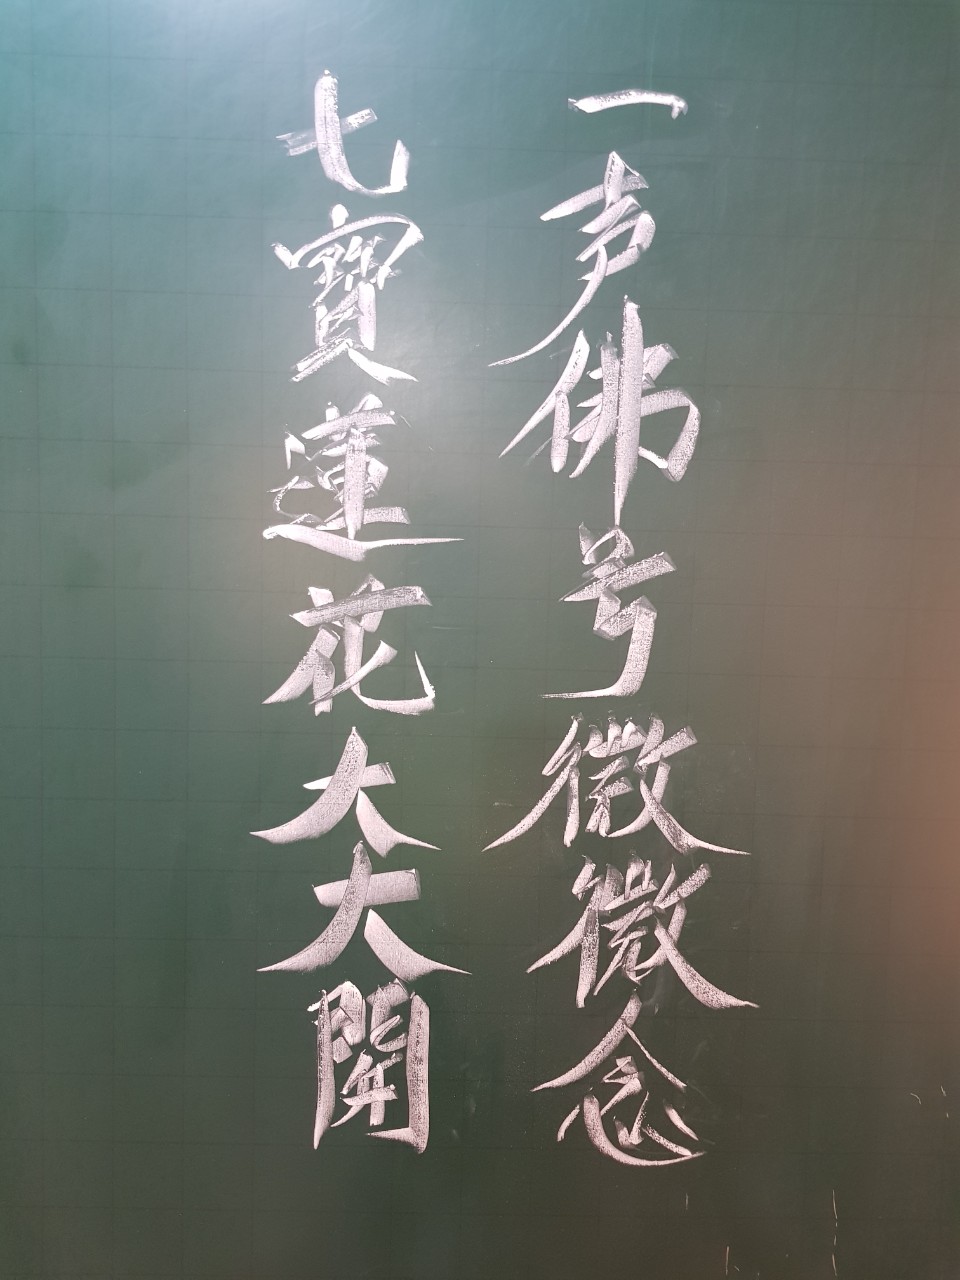 一声佛号微微念
七寶蓮花大大開